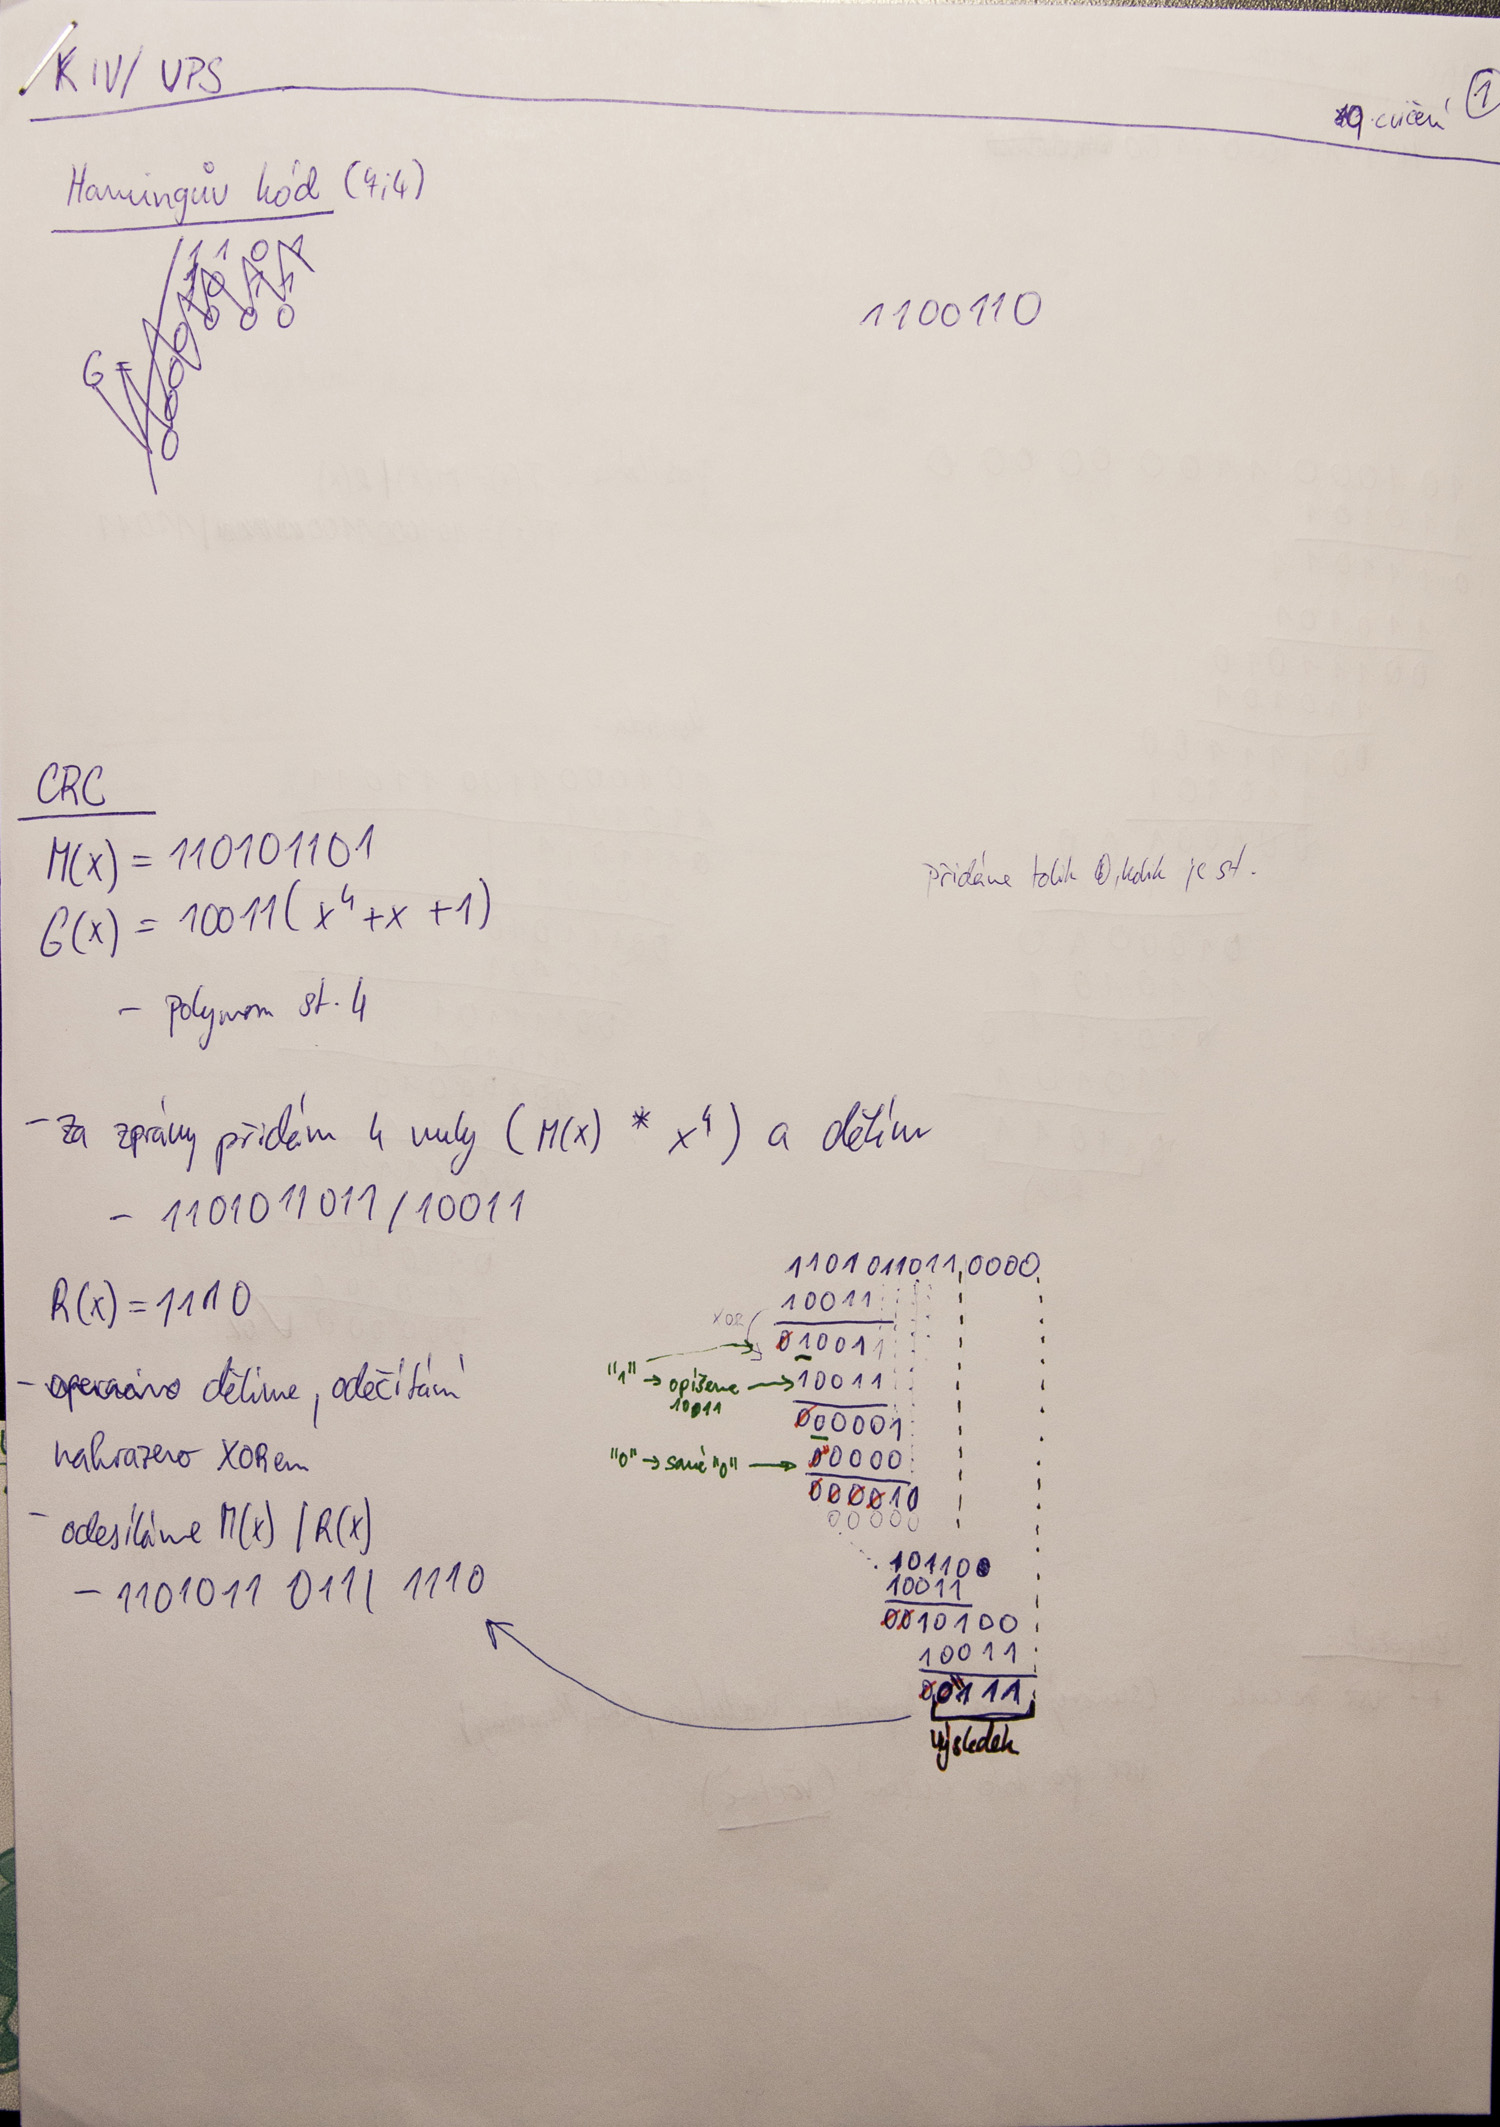 KIV/UPS
9. cvičení
1
Hamingův kód (7;4)
G =
1100110
CRC
M(x) = 110101101
přidáme tolik 0, kolik je st.
G(x) = 10011 (x⁴+x+1)
- polynom st. 4
- Za zprávu přidám 4 nuly (M(x) * x⁴) a dělím
- 1101011011/10011
R(x) = 1110
- dělíme, odečítání
nahrazeno XORem
- odesíláme M(x) / R(x)
- 1101011 011| 1110
1101011011 0000
10011
XOR
010011
"1" → opíšeme → 10011
10011
000001
"0" → samé "0" → 00000
000010
00000
10110
10011
0010100
10011
00111
výsledek